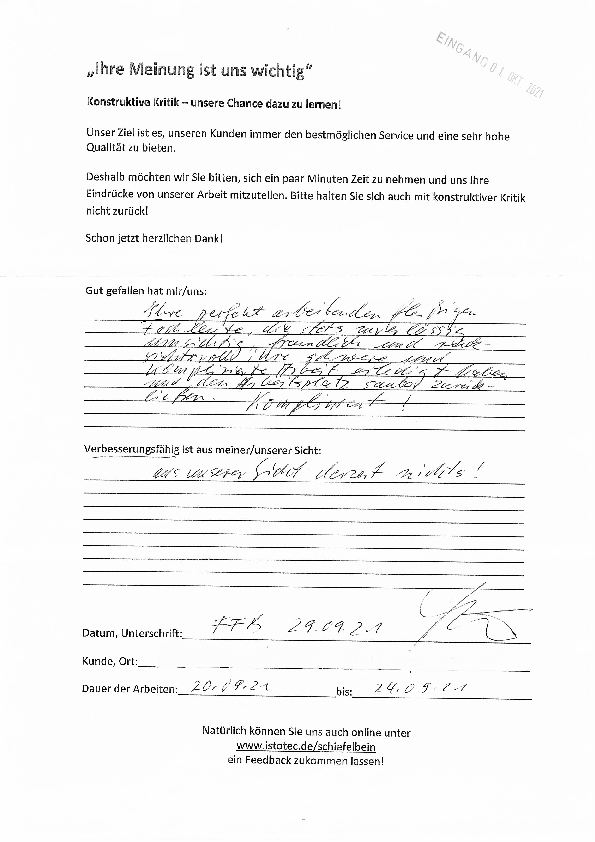 EINGANG 01. OKT. 2021
„Ihre Meinung ist uns wichtig“
Konstruktive Kritik – unsere Chance dazu zu lernen!
Unser Ziel ist es, unseren Kunden immer den bestmöglichen Service und eine sehr hohe
Qualität zu bieten.
Deshalb möchten wir Sie bitten, sich ein paar Minuten Zeit zu nehmen und uns Ihre
Eindrücke von unserer Arbeit mitzuteilen. Bitte halten Sie sich auch mit konstruktiver Kritik
nicht zurück!
Schon jetzt herzlichen Dank!
Gut gefallen hat mir/uns:
Ihre perfekt arbeitenden fleißigen
Fachleute, die stets zuverlässig
umsichtig, freundlich und rück-
sichtsvoll ihre schwere und
komplizierte Arbeit erledigt haben
und den Arbeitsplatz sauber zurück-
ließen. Kompliment!
Verbesserungsfähig ist aus meiner/unserer Sicht:
aus unserer Sicht derzeit nichts!
Datum, Unterschrift: 29.09.21
Kunde, Ort:
Dauer der Arbeiten: 20.09.21 bis: 24.09.21
Natürlich können Sie uns auch online unter
www.istotec.de/schiefelbein
ein Feedback zukommen lassen!